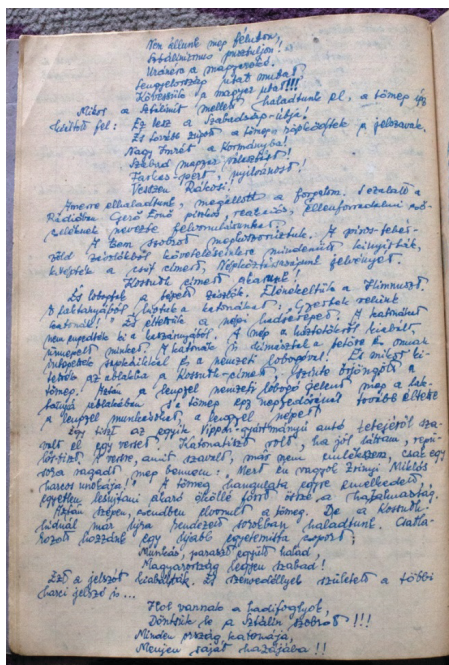 Nem állunk meg félúton,
Sztálinizmus pusztuljon!
Uránért a magyaroké.
Lengyelország utat mutat
Kövessük a magyar utat!!!
Mikor a Sztálint mellett haladtunk el, a tömeg így
kiáltott fel: Ez lesz a Szabadság-útja!
És tovább zúgott a tömeg, röpködtek a jelszavak.
Nagy Imrét a Kormányba!
Szabad magyar választást!
Farkas-pert, nyilvánost!
Vesszen Rákosi!
Amerre elhaladtunk, megállott a forgalom. Ezalatt a
Rádióban Gerő Ernő piszkos, reakciós, ellenforradalmi
nevezte felvonulásunkat.
A Bem szobrot megkoszorúztuk. A piros-fehér-
zöld zászlókból követelésünkre mindenütt kinyitták,
kivágták a csúf címert, Népköztársaságunk jelvényét.
Kossuth címert akarunk!
És lobogtak a tépett zászlók. Elénekeltük a Himnuszt.
A laktanyából kijöttek a katonák. Gyertek velünk
katonák! És éltettük a népi hadsereget. A katonákat
nem engedték ki a kaszárnyából. A nép a
minket. A katonák a tetőre és onnan
integettek sapkáikkal és a nemzeti lobogóval. És mikor ki-
tették az ablakba a Kossuth-címert, szinte őrjöngött a
tömeg! Aztán a lengyel nemzeti lobogó jelent meg a lak-
tanya ablakában s a tömeg egy negyedórányit tovább éltette
a lengyel munkásokat, a lengyel népet
Egy tiszt az egyik autó tetejéről sza-
valt el egy verset. Katonatiszt volt, ha jól láttam, repü-
lőtiszt. A versre, amit szavalt, már nem emlékszem, csak egy
sora ragadt meg bennem: Mert én vagyok Zrínyi Miklós
harcos unokája!! A tömeg hangulata egyre emelkedett,
egyetlen lesújtani akaró ököllé forrt össze a hazafiasság.
Aztán szépen, csendben elvonult a tömeg. De a Kossuth-
hídnál már újra rendezett sorokban haladtunk. Csatla-
kozott hozzánk egy újabb egyetemista csoport:
Munkás, paraszt együtt halad,
Magyarország legyen szabad!
Ezt a jelszót kiabálták. És szenvedélyek született a többi
harci jelszó is...
Hol vannak a hadifoglyok,
Döntsük le a Sztálin szobrot!!!
Minden ország katonája,
Menjen saját hazájába!!